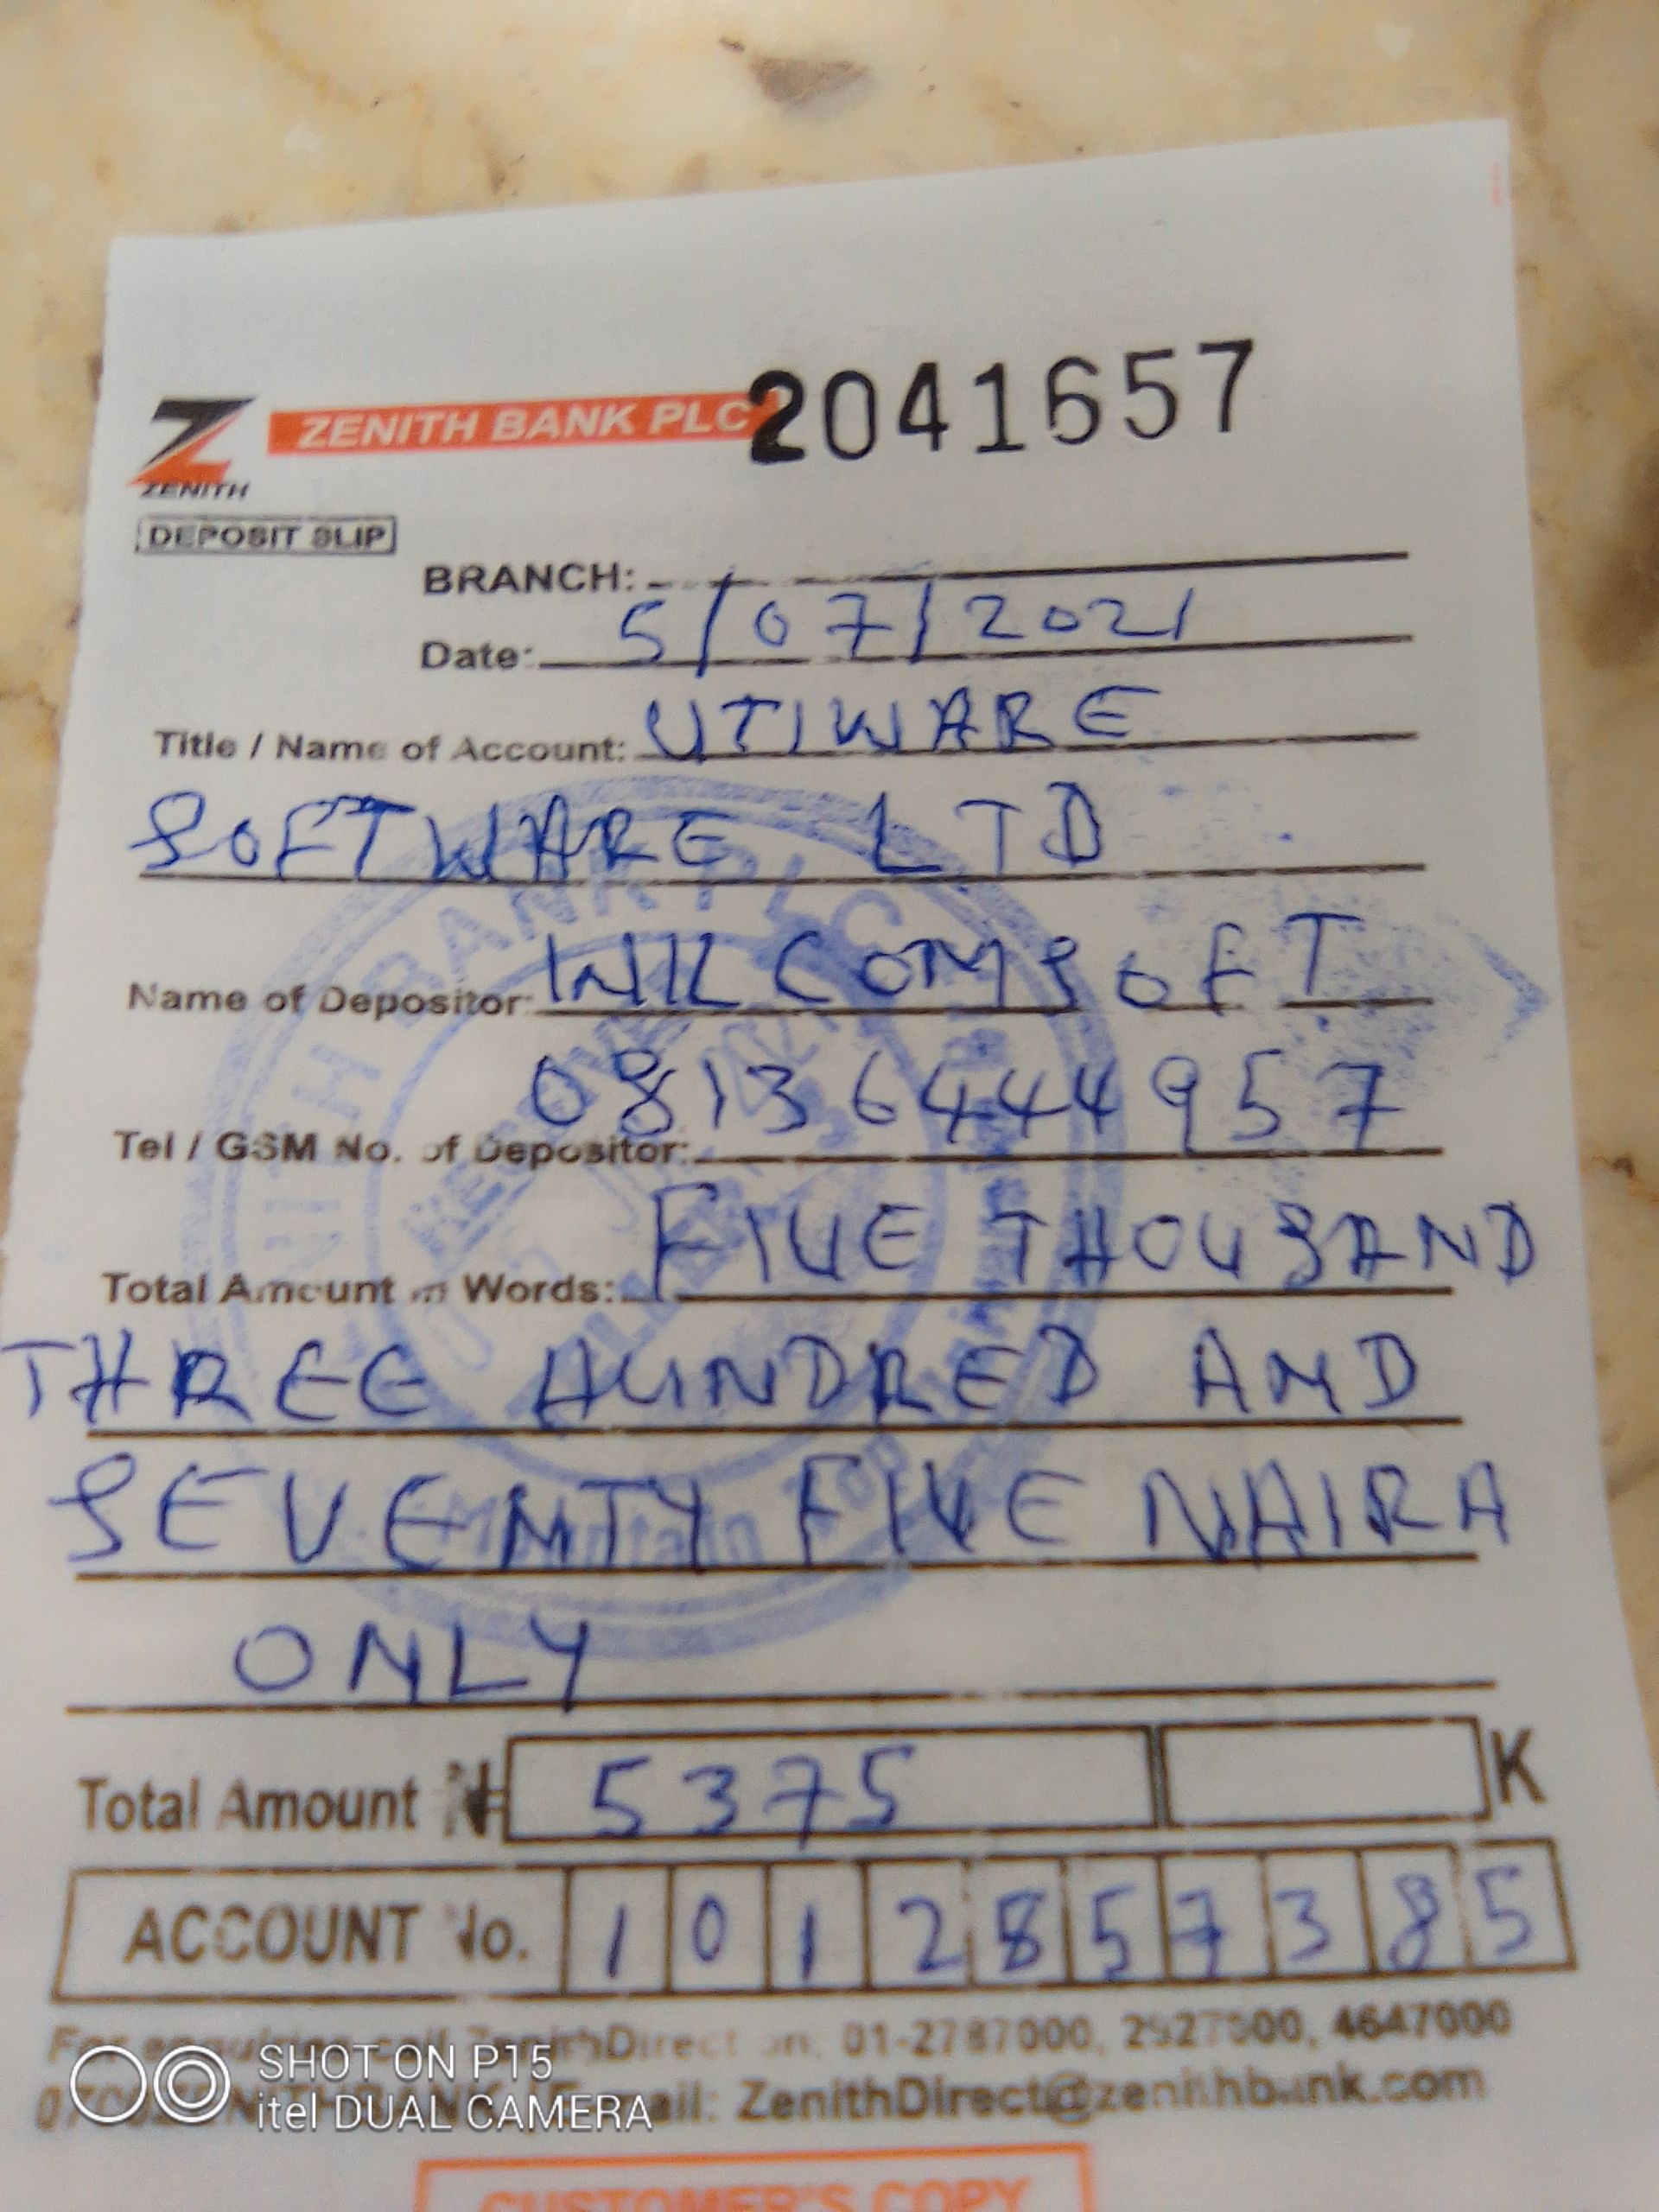 ZENITH BANK PLC 2041657
ZENITH
DEPOSIT SLIP
BRANCH:
Date: 5/07/2021
Title / Name of Account: UTIWARE
SOFTWARE LTD
Name of Depositor: WILCOMSOFT
08136444957
Tel / GSM No. of Depositor:
Total Amount in Words: FIVE THOUSAND
THREE HUNDRED AND
SEVENTY FIVE NAIRA
ONLY
Total Amount ₦ 5375 K
ACCOUNT No. 1012857385
For enquiries call ZenithDirect on: 01-2787000, 2927000, 4647000
mail: ZenithDirect@zenithbank.com
SHOT ON P15
itel DUAL CAMERA
CUSTOMER'S COPY